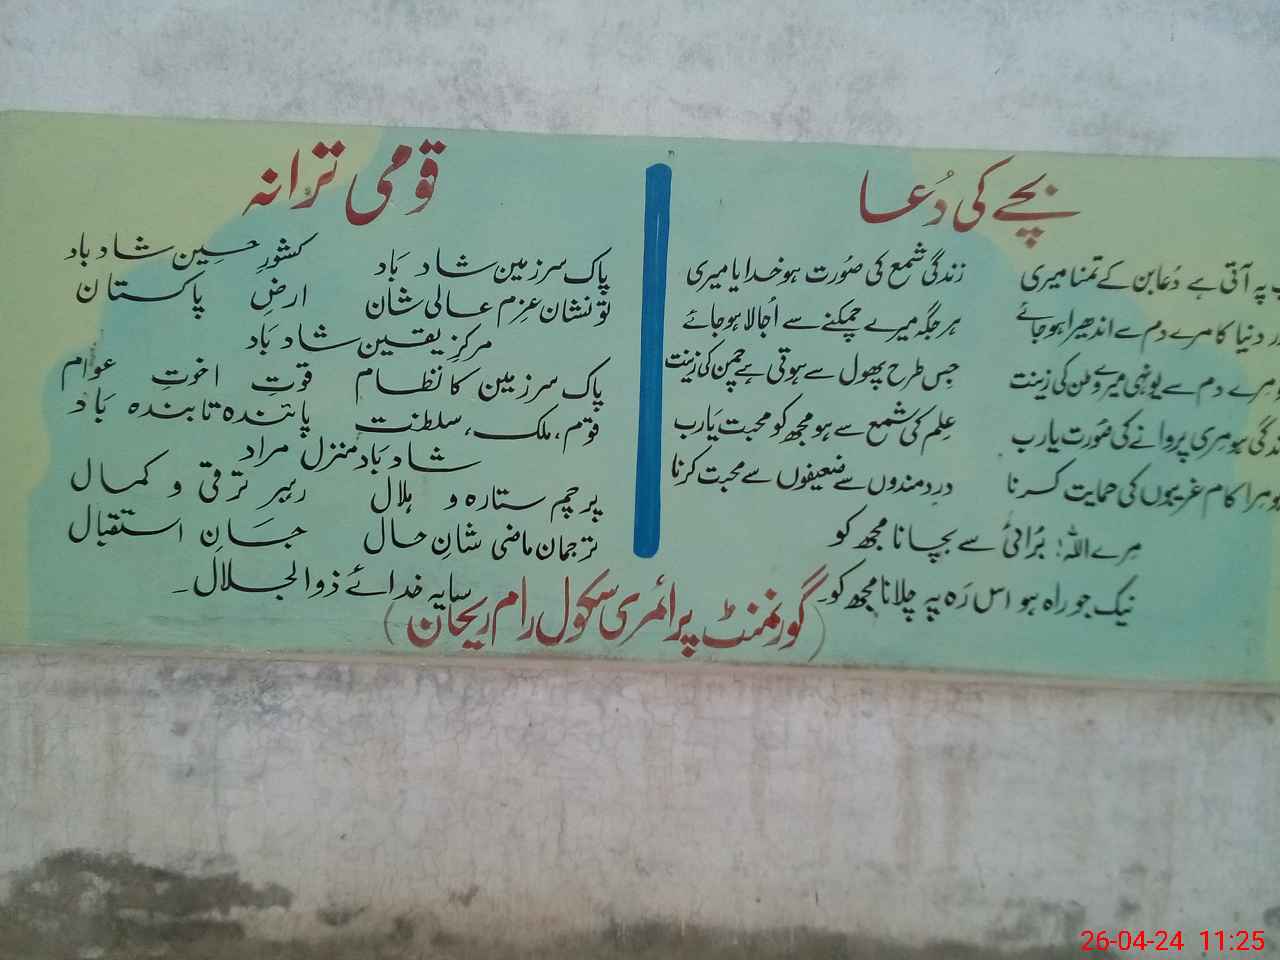 بچے کی دُعا
پہ آتی ہے دُعا بن کے تمنا میری
زندگی شمع کی صُورت ہو خدایا میری
دنیا کا مرے دم سے اندھیرا ہو جائے
ہر جگہ میرے چمکنے سے اُجالا ہو جائے
مرے دم سے یونہی میرے وطن کی زینت
جس طرح پھول سے ہوتی ہے چمن کی زینت
ہو مری پروانے کی صُورت یارب
عِلم کی شمع سے ہو مجھ کو محبت یارب
ہو مرا کام غریبوں کی حمایت کرنا
دردمندوں سے ضعیفوں سے محبت کرنا
مرے اللہ! بُرائی سے بچانا مجھ کو
نیک جو راہ ہو اس رَہ پہ چلانا مجھ کو۔
قومی ترانہ
پاک سرزمین شاد باد کشورِ حسین شاد باد
تو نشان عزم عالی شان ارضِ پاکستان
مرکزِ یقین شاد باد
پاک سرزمین کا نظام قوتِ اخوتِ عوام
قوم، ملک، سلطنت پائندہ تابندہ باد
شاد باد منزل مراد
پرچم ستارہ و ہلال رہبر ترقی و کمال
ترجمان ماضی شانِ حال جانِ استقبال
سایہ خدائے ذوالجلال۔
(گورنمنٹ پرائمری سکول رام ریحان)
26-04-24 11:25